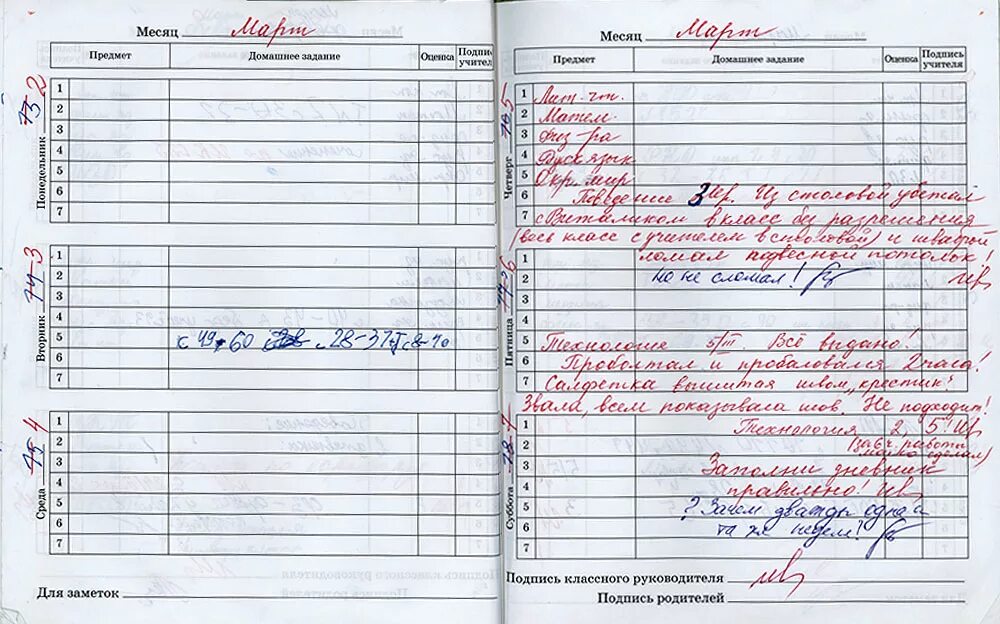 Месяц Март
Предмет Домашнее задание Оценка Подпись учителя
Понедельник 2
1
2
3
4
5
6
7
Вторник 3
1
2
3
4
5 с 49, 60 28-37, с 8-10
6
7
Среда 4
1
2
3
4
5
6
7
Для заметок
Месяц Март
Предмет Домашнее задание Оценка Подпись учителя
Четверг 5
1 Лит. чт.
2 Матем.
3 Физ-ра
4 Русск язык
5 Окр. мир
6 Поведение 3 Из столовой убежал
7 с Виталиком в класс без разрешения
(весь класс с учителем в столовой) и шваброй
ломал подвесной потолок!
Пятница 6
1
2 но не сломал!
3
4
5 Технология 5/III. Всё выдано!
6 Проболтал и пробаловался 2 часа!
7 Салфетка вышитая швом "крестик".
Звала, всем показывала шов. Не подходит!
Суббота 7
1 Технология 2, 5!
2 (за 6 ч. работы мало сделал)
3 Заполни дневник
4 правильно!
5 ? Зачем дважды одна и
6 та же неделя?
7
Подпись классного руководителя
Подпись родителей